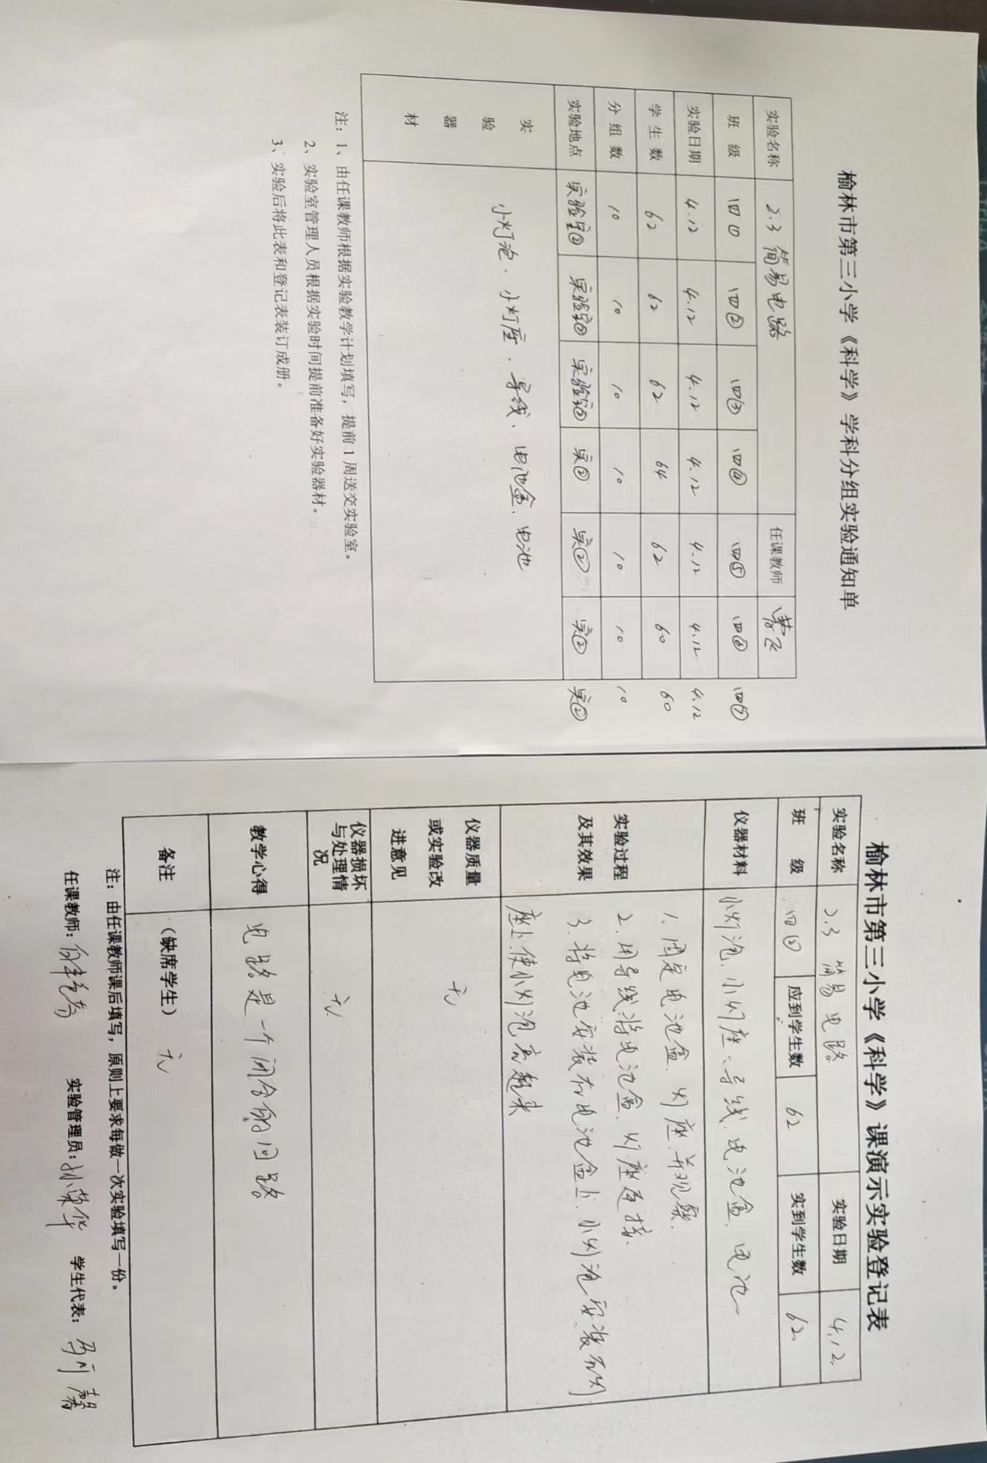 榆林市第三小学《科学》学科分组实验通知单
实验名称 2.3 简易电路 任课教师
班 级 四① 四② 四③ 四④ 四⑤ 四⑥ 四⑦
实验日期 4.12 4.12 4.12 4.12 4.12 4.12 4.12
学 生 数 62 62 62 64 62 60 60
分 组 数 10 10 10 10 10 10 10
实验地点 实验室② 实验室② 实验室② 实② 实② 实② 实②
实验器材 小灯泡、小灯座、导线、电池盒、电池
注：1、由任课教师根据实验教学计划填写，提前1周送交实验室。
2、实验室管理人员根据实验时间提前准备好实验器材。
3、实验后将此表和登记表装订成册。
榆林市第三小学《科学》课演示实验登记表
实验名称 2.3 简易电路 实验日期 4.12.
班 级 应到学生数 62 实到学生数 62.
仪器材料 小灯泡、小灯座、导线、电池盒、电池
实验过程及其效果 1. 固定电池盒、灯座并观察.
2. 用导线将电池盒、灯座连接.
3. 将电池安装在电池盒上.小灯泡安装在灯
座上使小灯泡亮起来
仪器质量或实验改进意见 无
仪器损坏与处理情况 无
教学心得 电路是一个闭合的回路
备注 （缺席学生） 无
注：由任课教师课后填写，原则上要求每做一次实验填写一份。
任课教师： 实验管理员：孙荣华 学生代表：